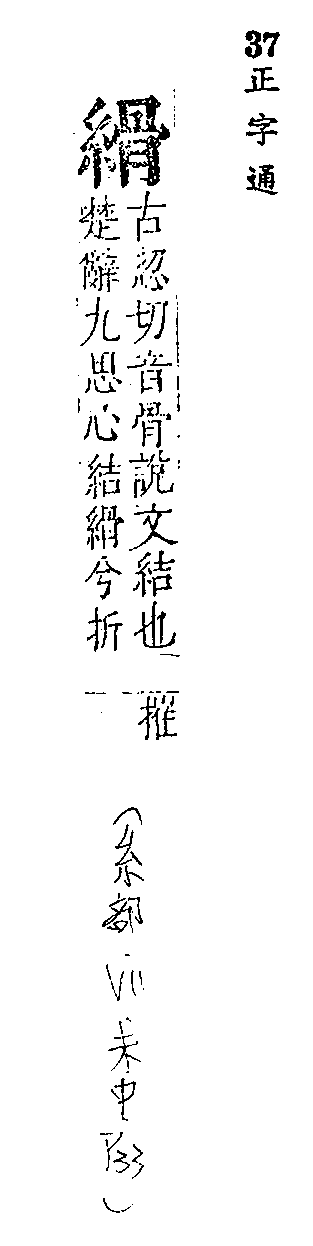 37正字通
縎
古忽切音骨說文結也
楚辭九思心結縎兮折
摧
(糸部 VII 未中 P33)